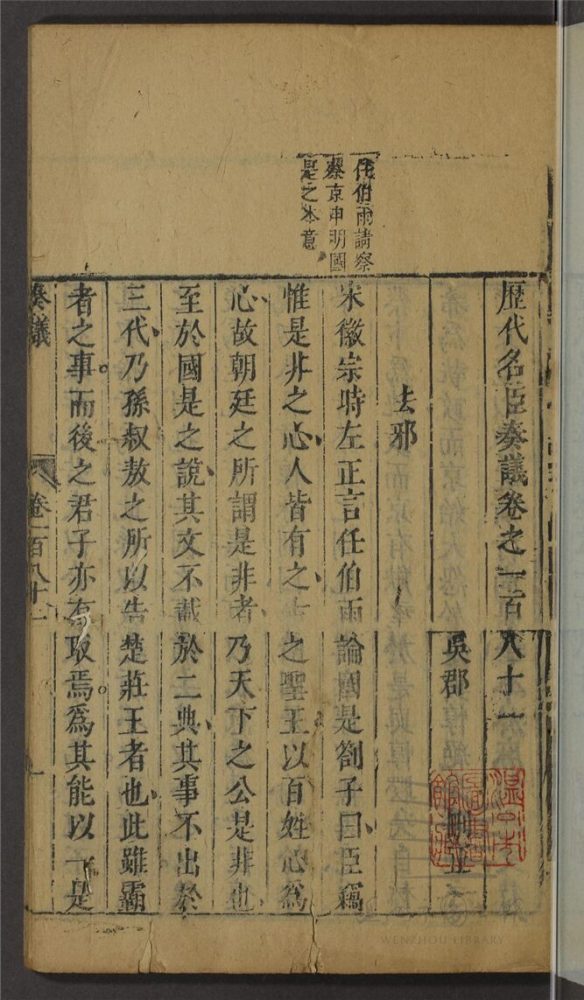 歷代名臣奏議卷之一百八十一
吳郡 刪正
去邪
宋徽宗時左正言任伯雨論國是劄子曰臣竊
惟是非之心人皆有之 之聖王以百姓心爲
心故朝廷之所謂是非者乃天下之公是非也
至於國是之說其文不載於二典其事不出於
三代乃孫叔敖之所以告楚莊王者也此雖霸
者之事而後之君子亦有取焉爲其能以一是
任伯雨請察
蔡京申明國
是之本意
奏議 卷一百八十一 一
WENZHOU LIBRARY